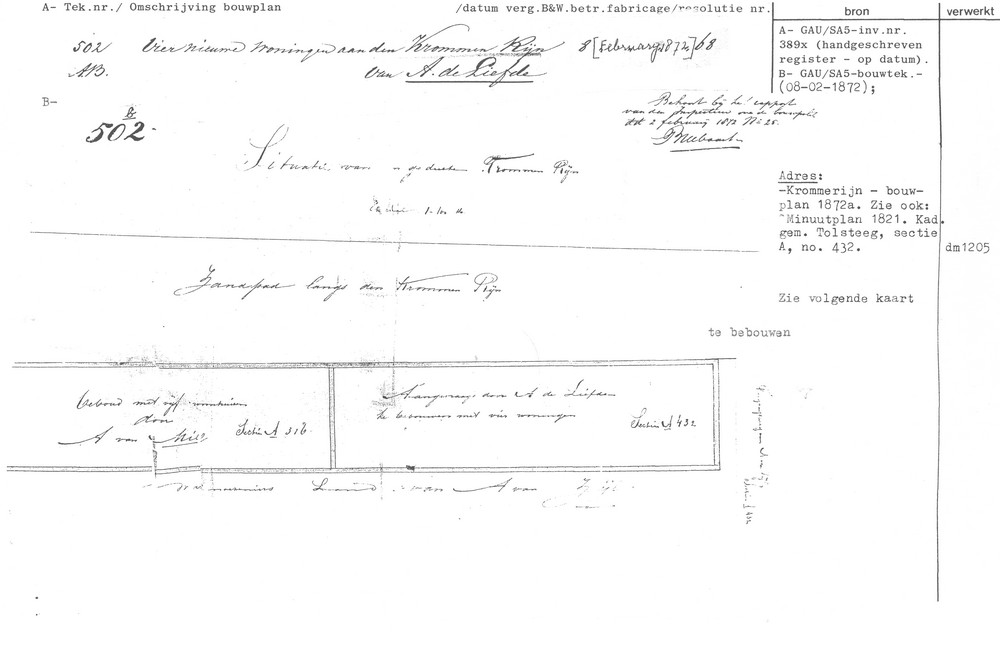 A- Tek.nr./ Omschrijving bouwplan /datum verg.B&W.betr.fabricage/resolutie nr.
bron verwerkt
502 Vier nieuwe woningen aan den Krommen Rijn 8 [Februarij 1872] 68
AB. van A. de Liefde
A- GAU/SA5-inv.nr.
389x (handgeschreven
register - op datum).
B- GAU/SA5-bouwtek.-
(08-02-1872);
B-
502
Behoort bij het rapport
van den Inspecteur
dd 2 februarij 1872 No 28.
Situatie van gedeelte Krommen Rijn
Adres:
-Krommerijn - bouw-
plan 1872a. Zie ook:
Minuutplan 1821. Kad.
gem. Tolsteeg, sectie
A, no. 432.
dm1205
Zandpad langs den Krommen Rijn
Zie volgende kaart
te bebouwen
bebouwd met vijf woningen
door
A van
Sectie A 316
Aangevraagd door A de Liefde
te bebouwen met vier woningen
Sectie A 432
van A van